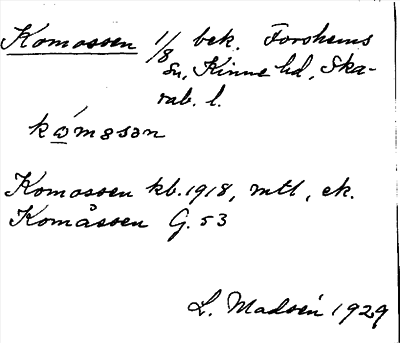 Komossen 1/8 bek. Forshems
Sn, Kinne hd, Ska-
rab. l.
kómosən
Komossen kb. 1918, mtl, ek.
Komåssen G. 53
L. Madsén 1929